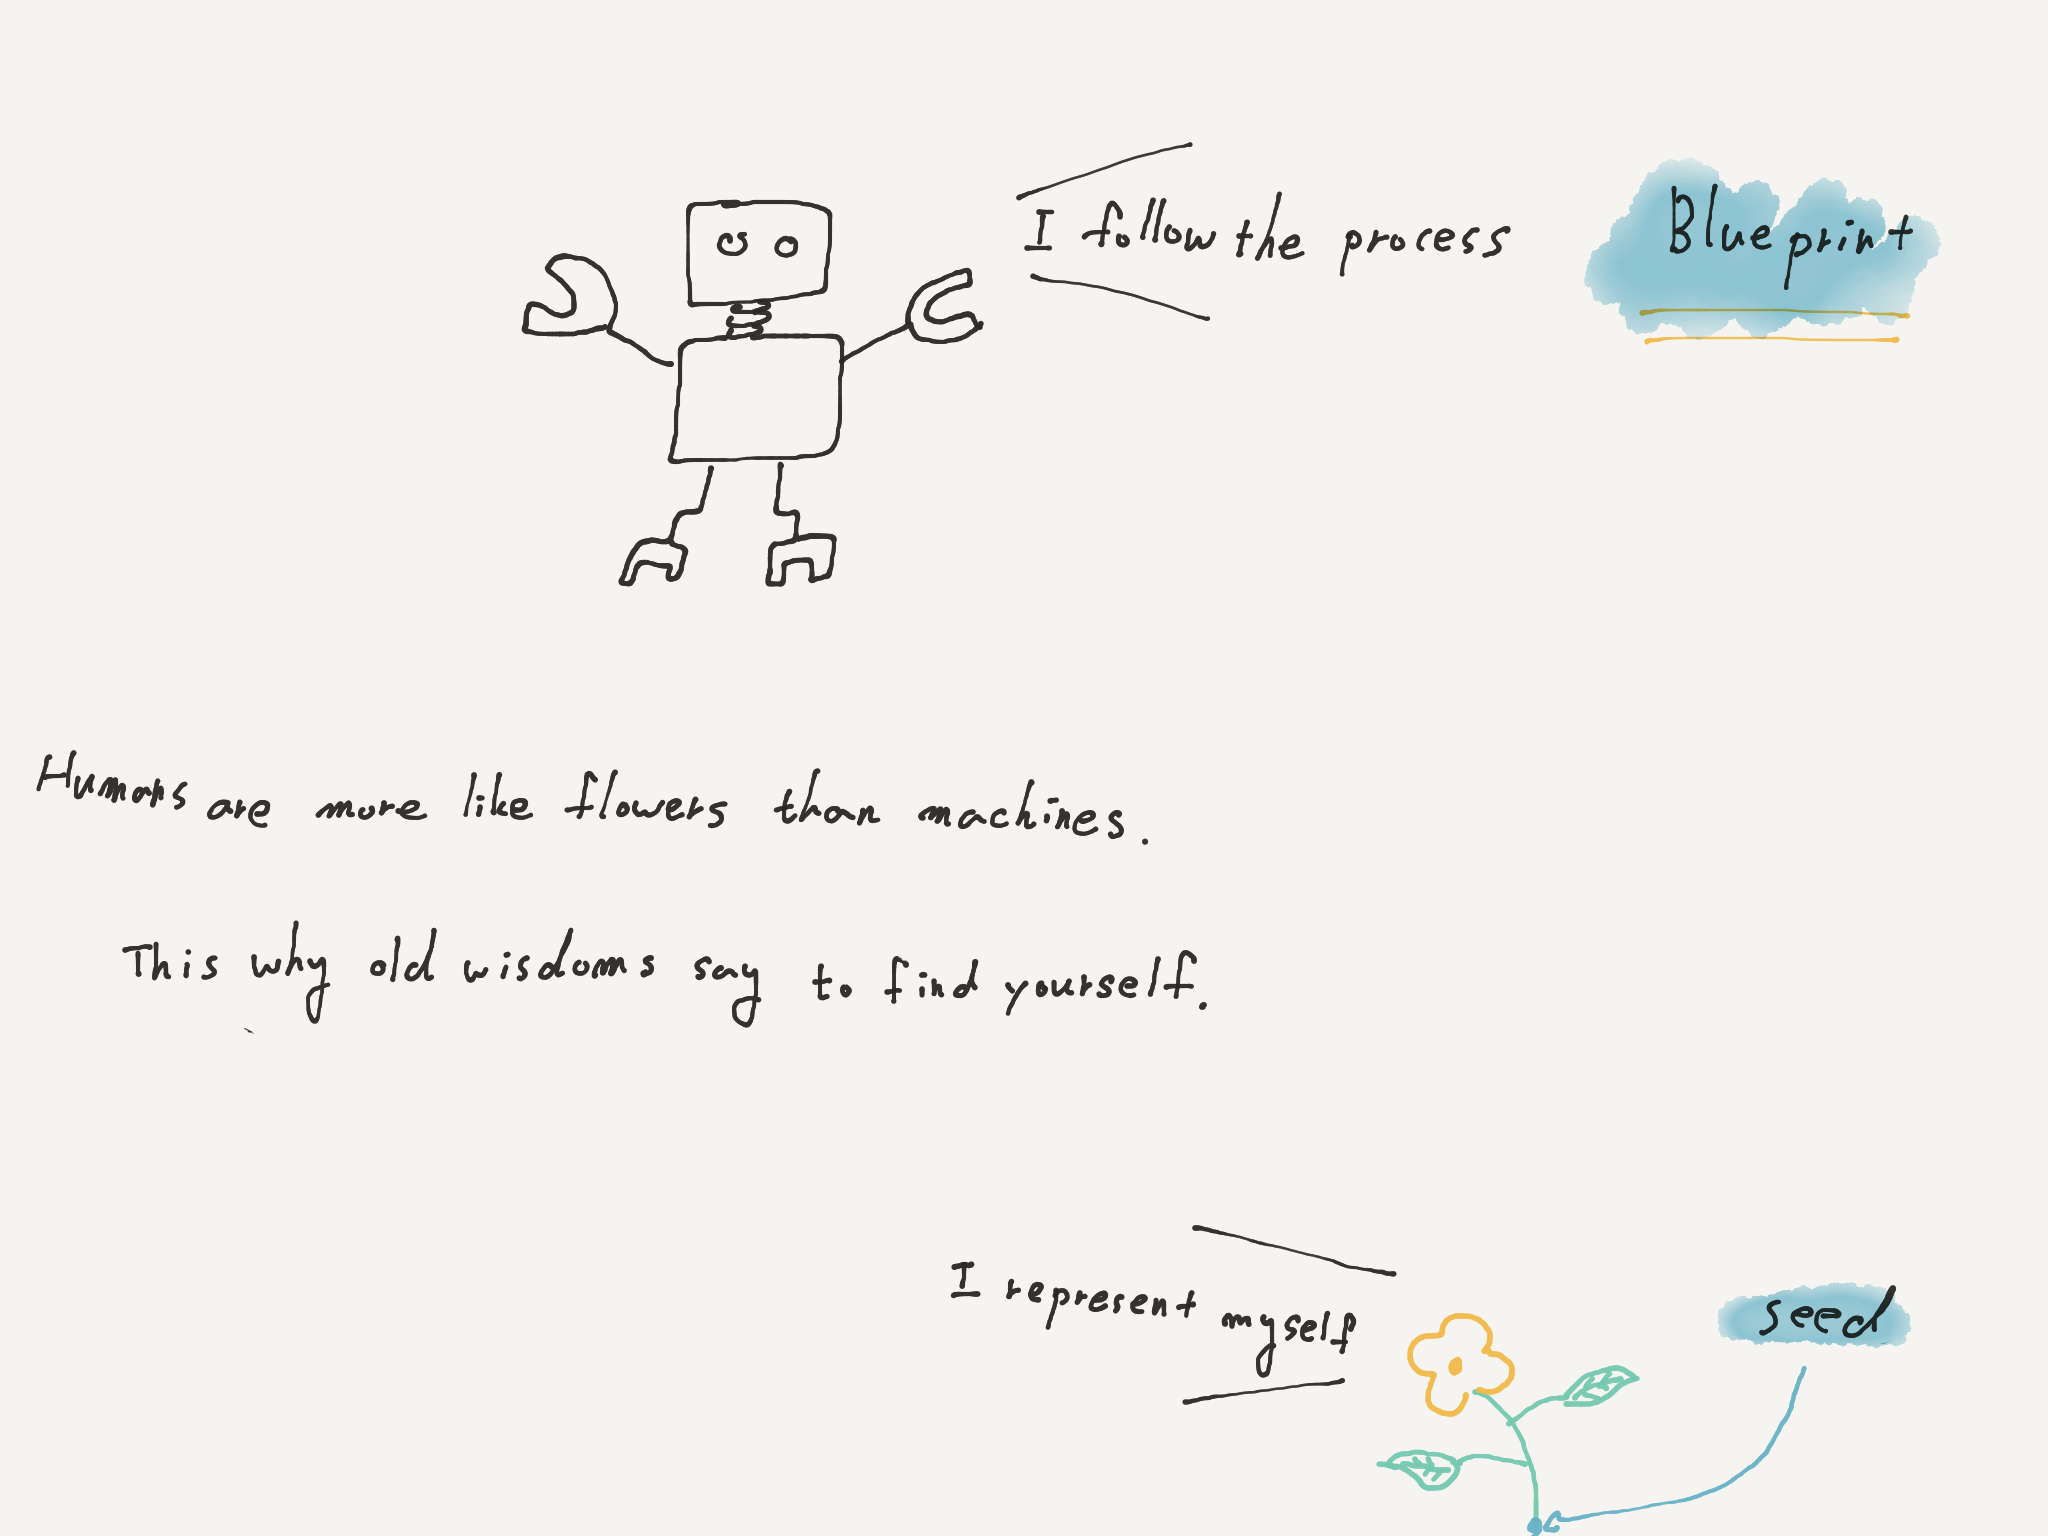 I follow the process
Blueprint
Humans are more like flowers than machines.
This why old wisdoms say to find yourself.
I represent myself
seed